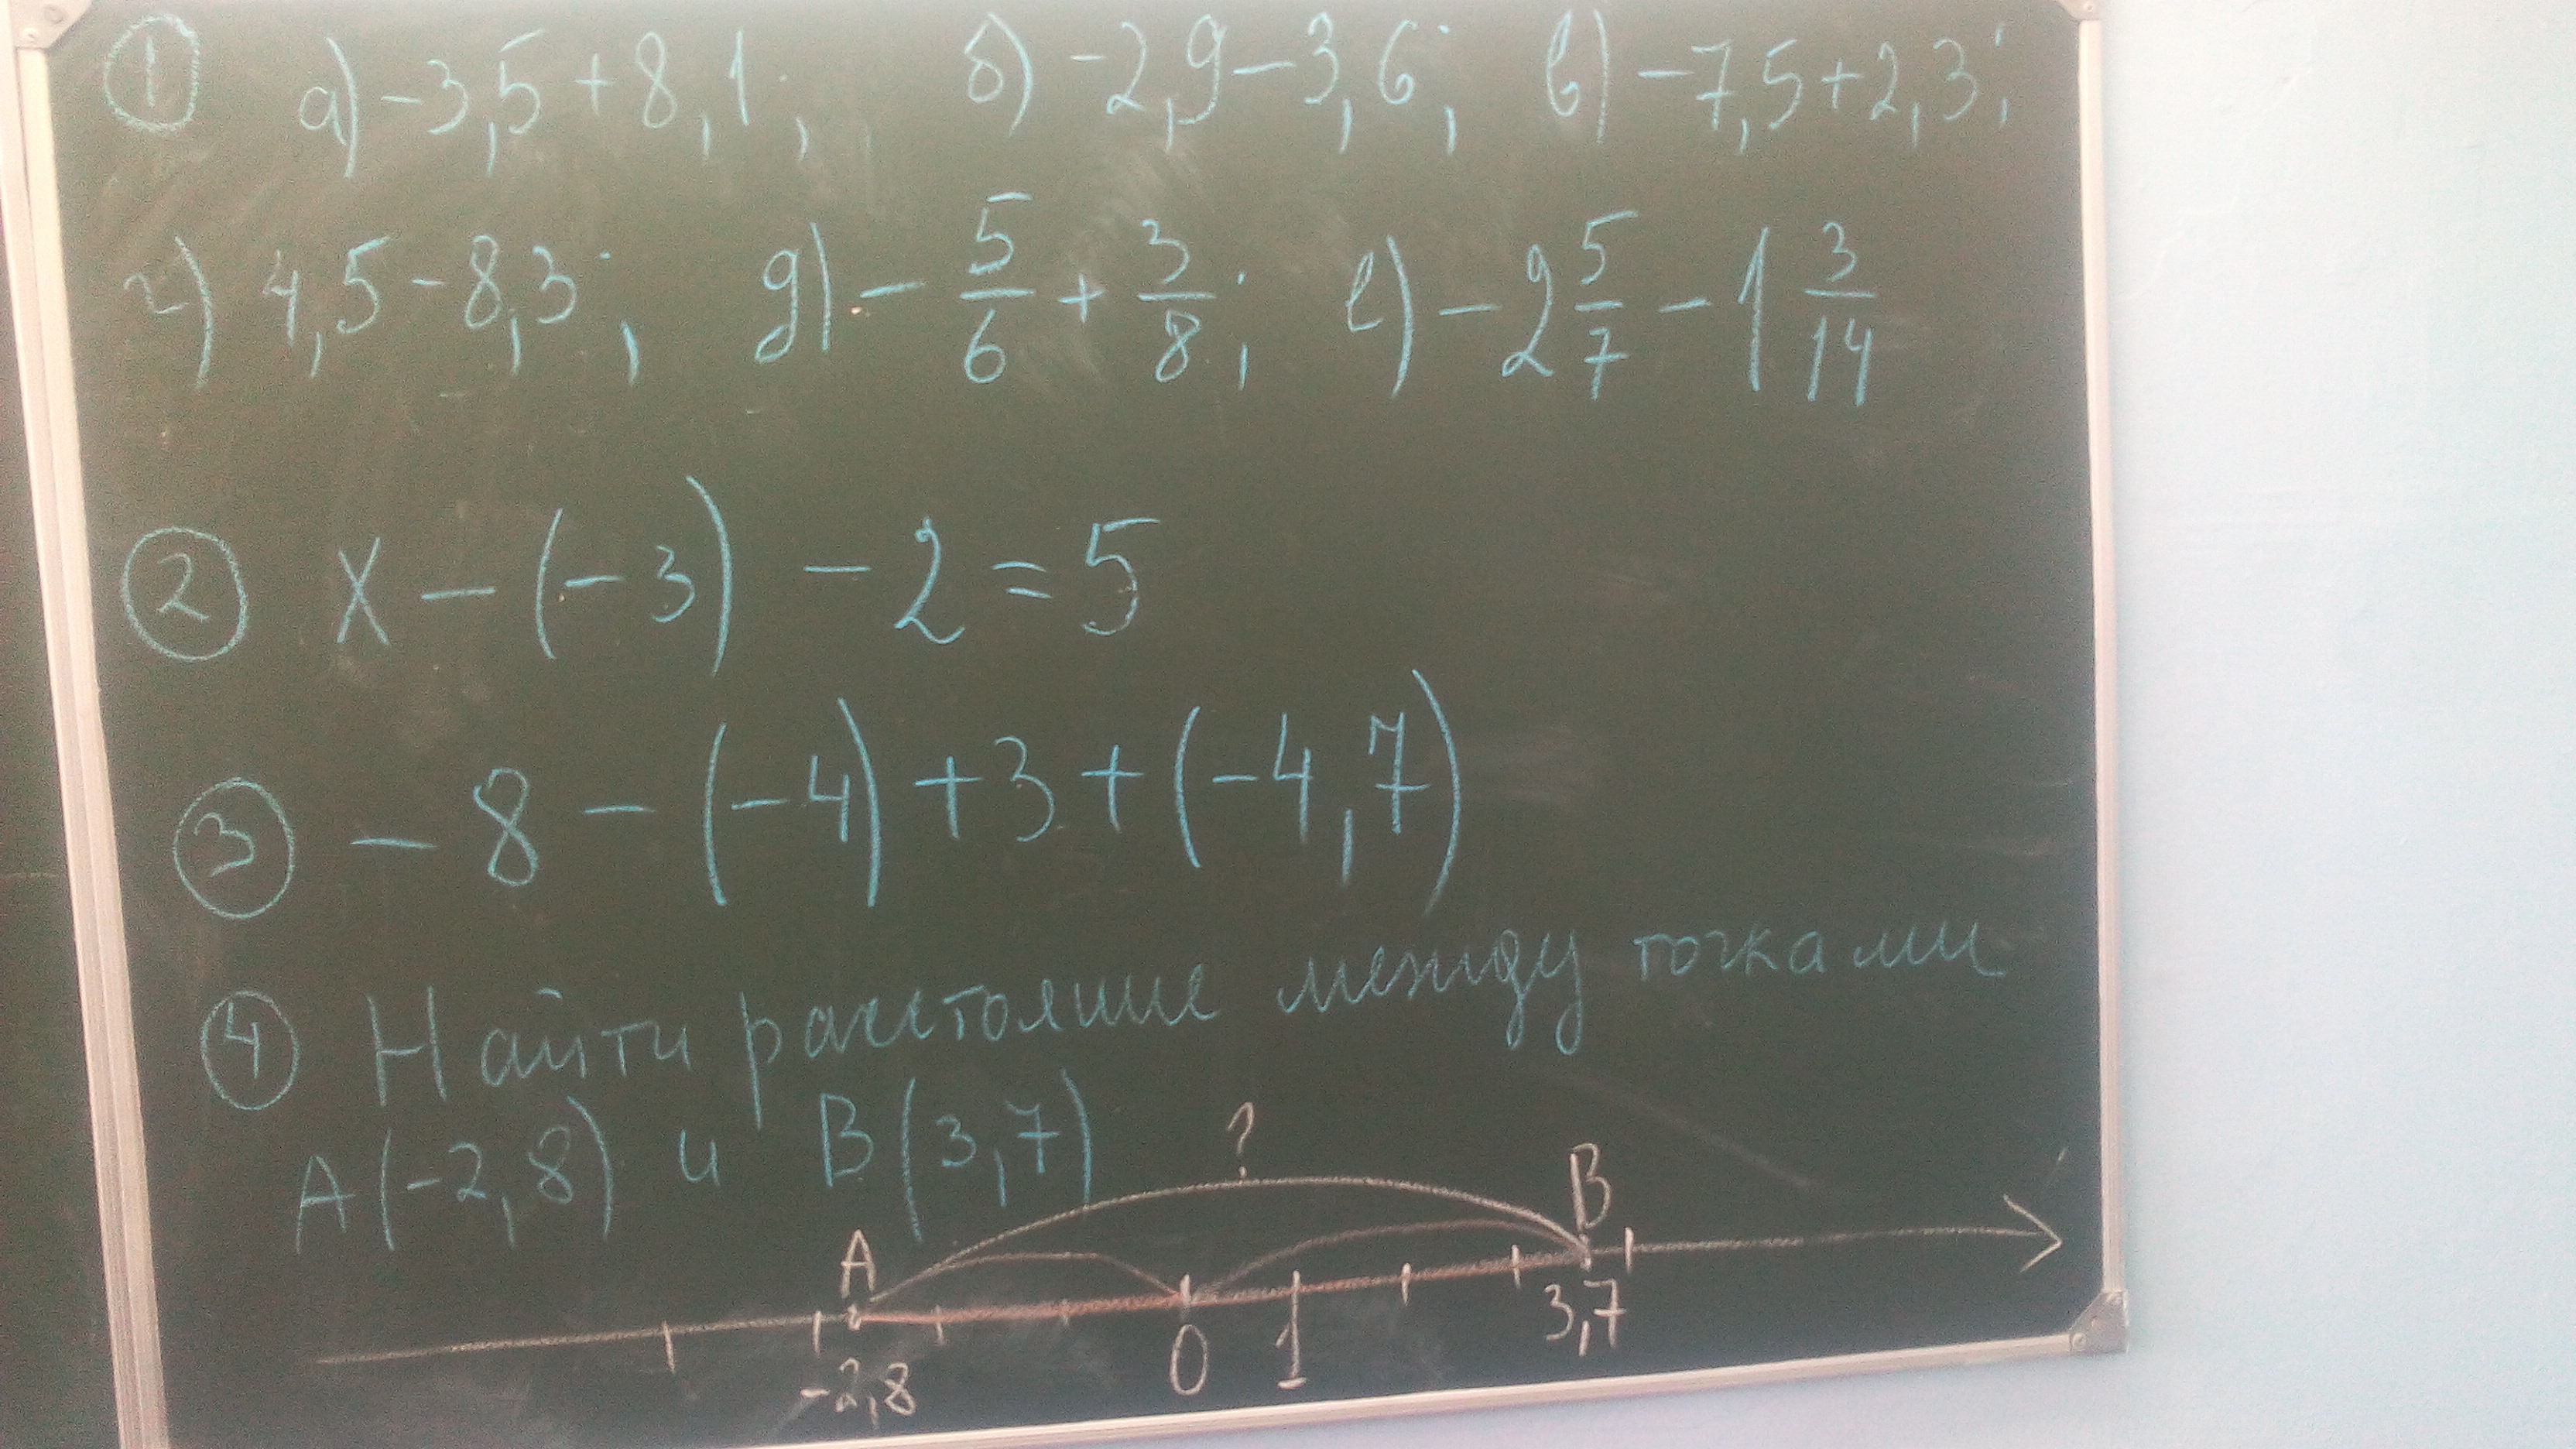 ① а) -3,5 + 8,1; б) -2,9 - 3,6; в) -7,5 + 2,3;
г) 4,5 - 8,3; д) - 5/6 + 3/8; е) - 2 5/7 - 1 3/14
② x - (-3) - 2 = 5
③ - 8 - (-4) + 3 + (-4,7)
④ Найти расстояние между точками
A(-2,8) и B(3,7)
?
A B
-2,8 0 1 3,7